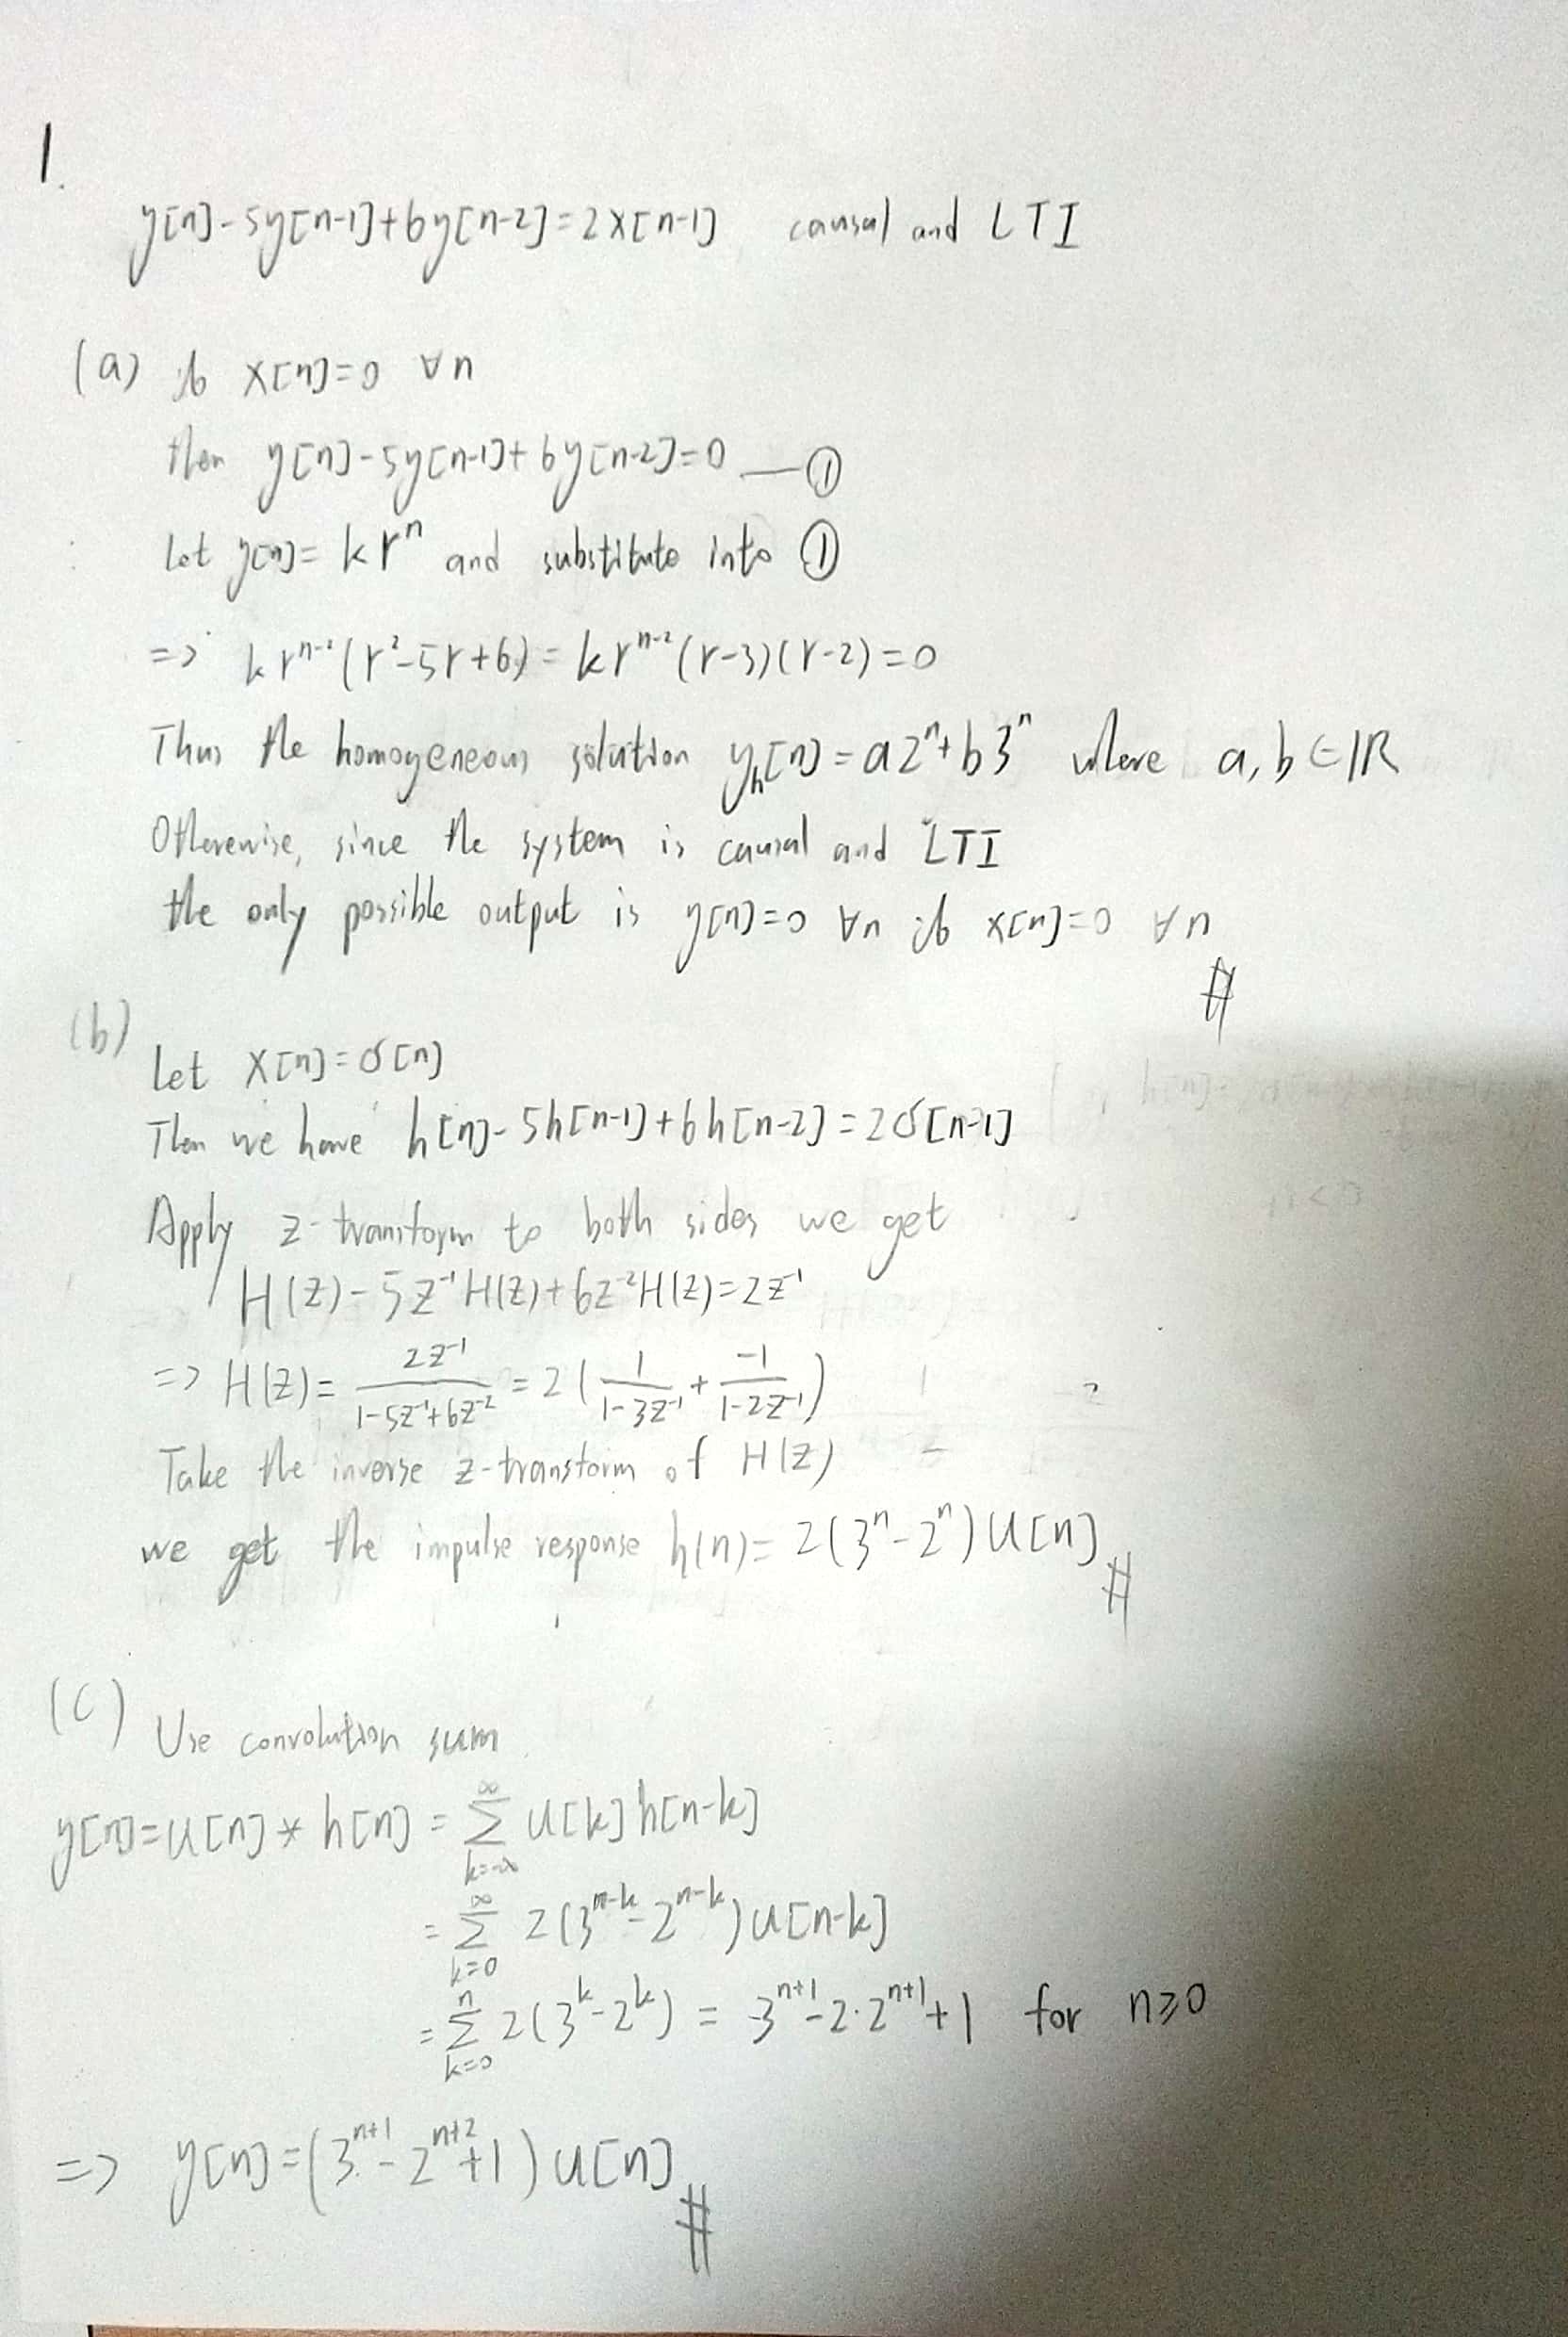 1.
y[n]-5y[n-1]+6y[n-2]=2x[n-1] causal and LTI
(a) if x[n]=0 ∀n
then y[n]-5y[n-1]+6y[n-2]=0 —①
Let y[n]=krⁿ and substitute into ①
=> krⁿ⁻²(r²-5r+6)=krⁿ⁻²(r-3)(r-2)=0
Thus the homogeneous solution yₕ[n]=a2ⁿ+b3ⁿ where a,b∈ℝ
Otherewise, since the system is causal and LTI
the only possible output is y[n]=0 ∀n if x[n]=0 ∀n
#
(b)
Let x[n]=δ[n]
Then we have h[n]-5h[n-1]+6h[n-2]=2δ[n-1]
Apply z-transform to both sides we get
H(z)-5z⁻¹H(z)+6z⁻²H(z)=2z⁻¹
=> H(z)= 2z⁻¹/(1-5z⁻¹+6z⁻²) = 2(1/(1-3z⁻¹) + -1/(1-2z⁻¹))
Take the inverse z-transform of H(z)
we get the impulse response h(n)=2(3ⁿ-2ⁿ)u[n] #
(c) Use convolution sum
y[n]=u[n]*h[n]=∑_{k=-∞}^{∞} u[k]h[n-k]
=∑_{k=0}^{∞} 2(3ⁿ⁻ᵏ-2ⁿ⁻ᵏ)u[n-k]
=∑_{k=0}^{n} 2(3ᵏ-2ᵏ) = 3ⁿ⁺¹-2·2ⁿ⁺¹+1 for n≥0
=> y[n]=(3ⁿ⁺¹-2ⁿ⁺²+1)u[n] #